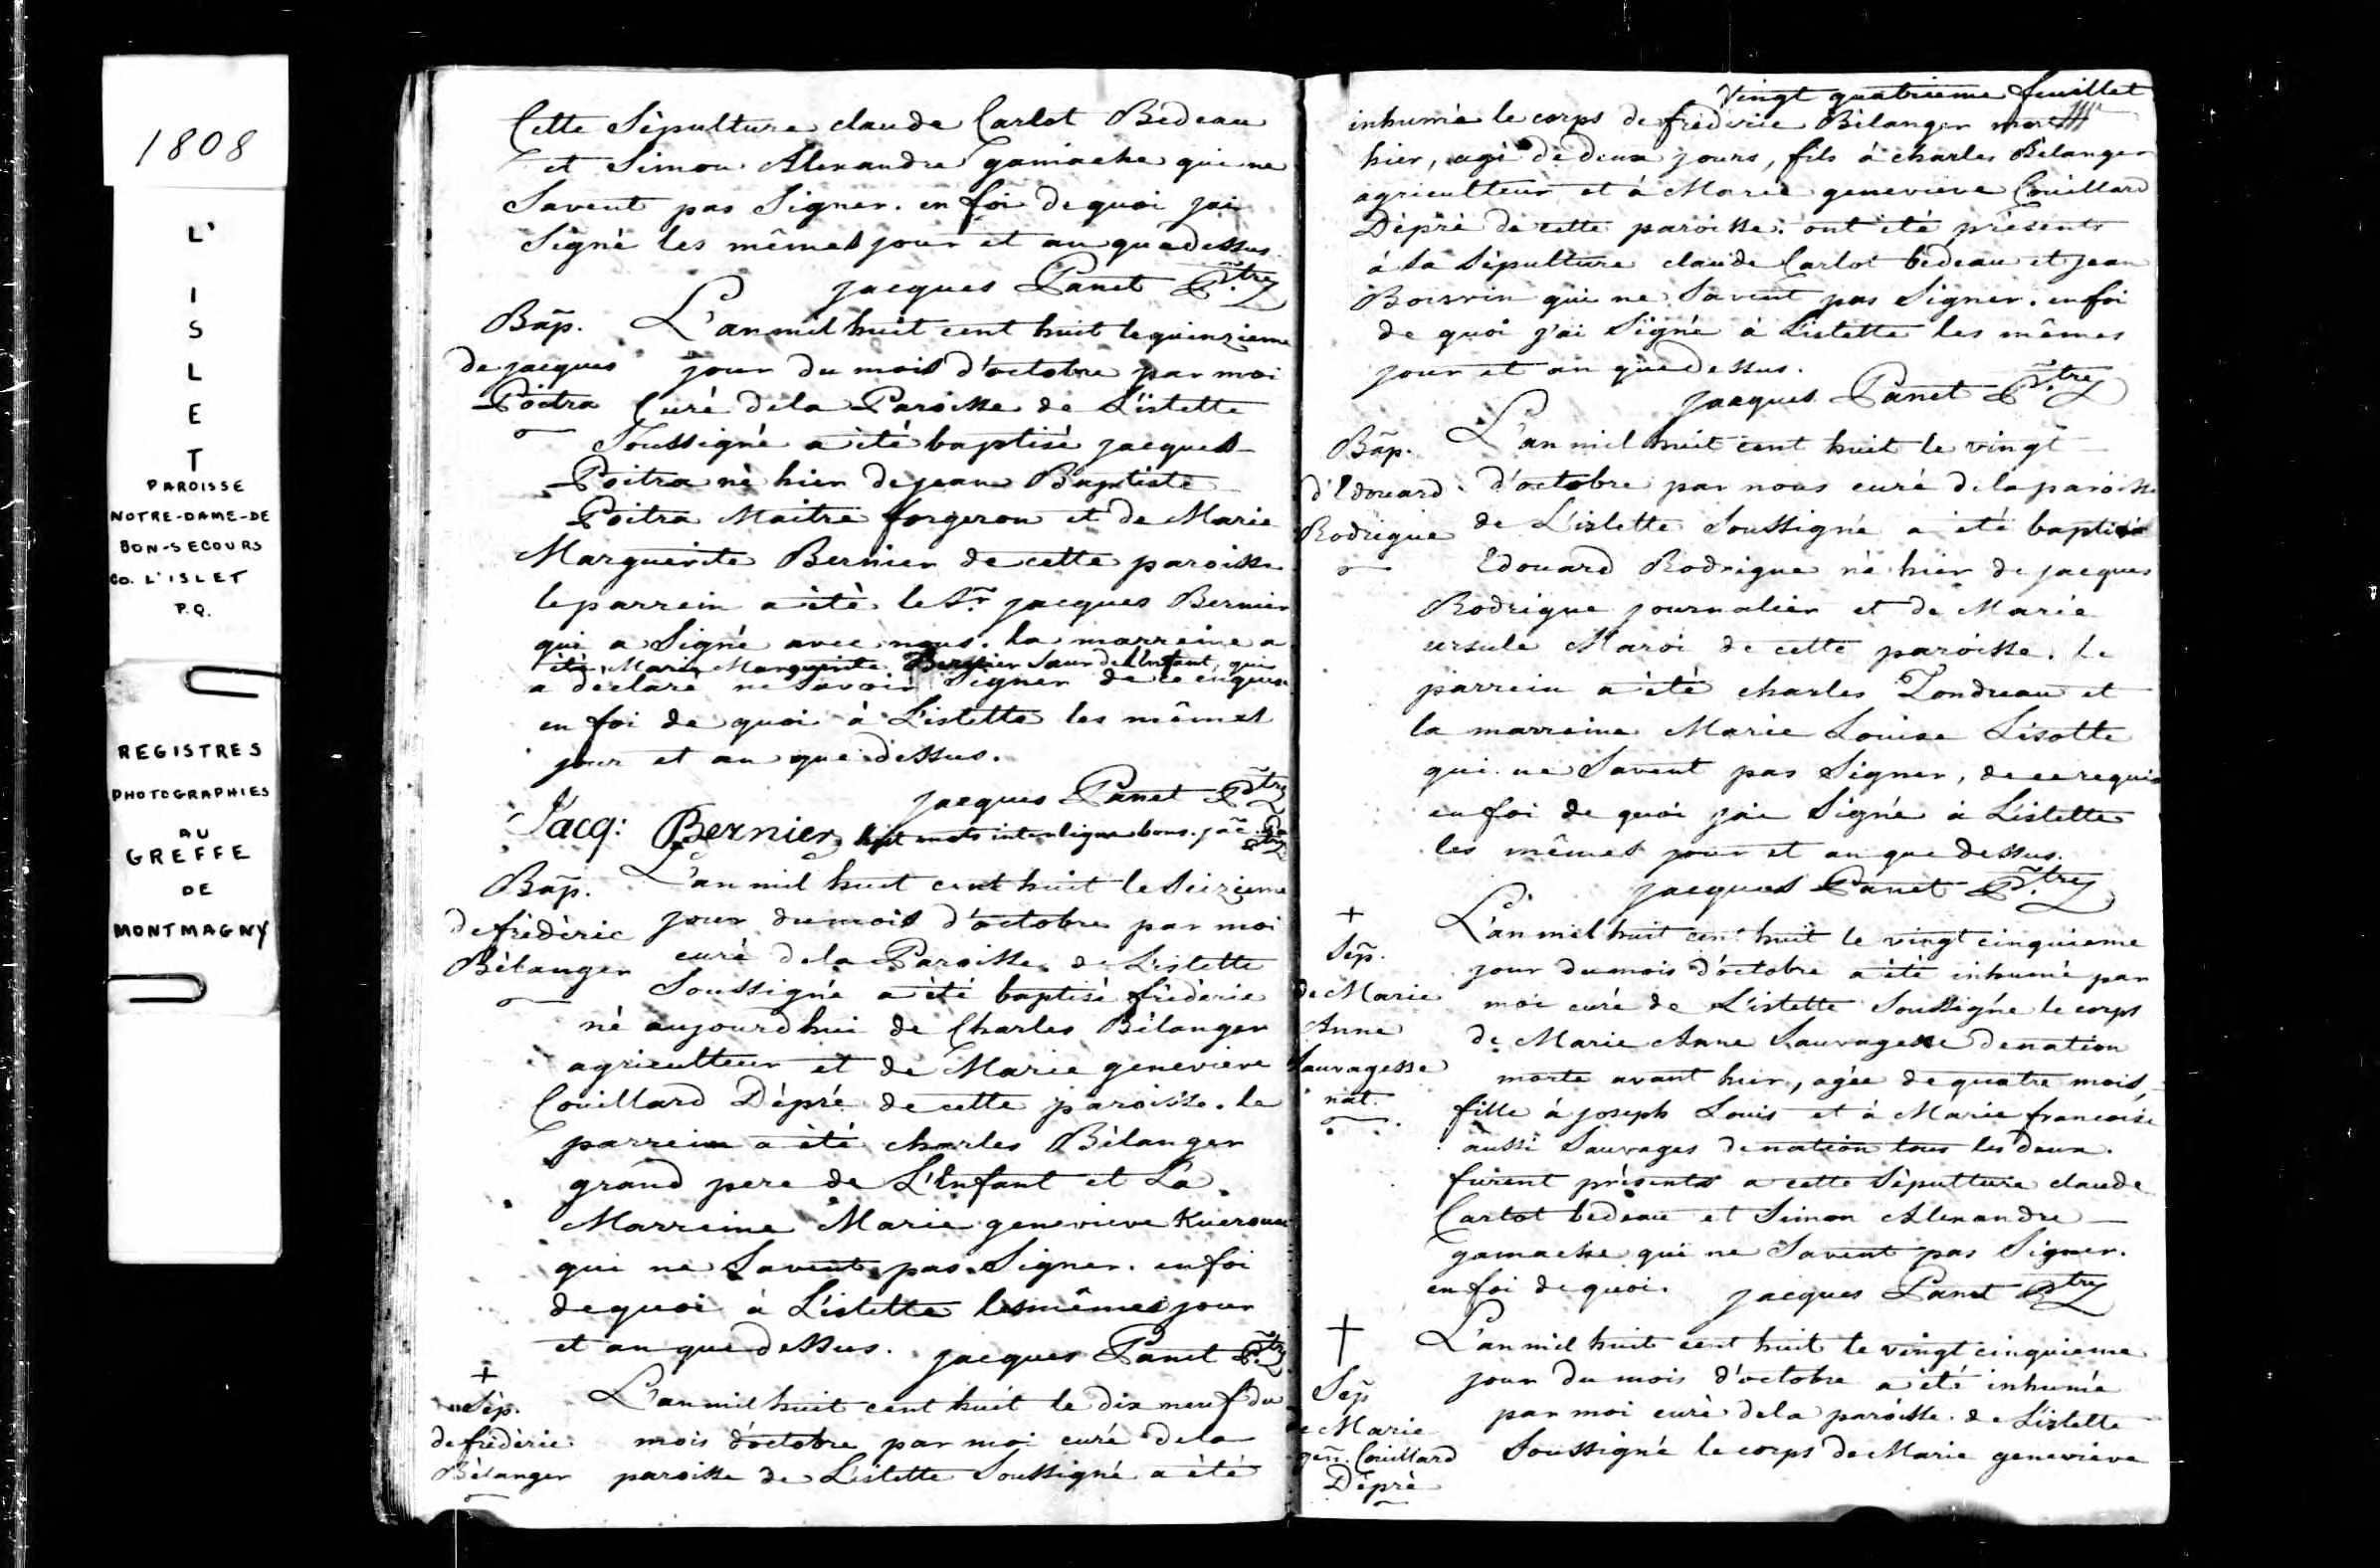 1808
L'
I
S
L
E
T
PAROISSE
NOTRE-DAME-DE
BON-SECOURS
CO. L'ISLET
P.Q.
REGISTRES
PHOTOGRAPHIES
AU
GREFFE
DE
MONTMAGNY
Cette Sèpulture claude Carlot Bedeau
et Simon Alexandre gamache qui ne
Savent pas Signer. en foi de quoi jai
Signé les mêmes jour et an que dessus
jacques Panet Ptre
Bap.
de jacques
Poitra
L'an mil huit cent huit le quinzieme
jour du mois d'octobre par moi
Curé de la Paroisse de L'islette
Soussigné a été baptisé jacques
Poitra né hier de jean Baptiste
Poitra Maitre forgeron et de Marie
Marguerite Bernier de cette paroisse
le parrein a été le Sr. jacques Bernier
qui a Signé avec nous. la marreine a
été, Marie Marguerite Bernier Sœur de L'enfant, qui
a déclaré ne Savoir Signer de ce enquise
en foi de quoi à L'islette les mêmes
jour et an que dessus.
jacques Panet Ptre
Jacq: Bernier huit mots interligne bons. jac. Pa
Ptre
Bap.
de frédéric
Bélanger
L'an mil huit cent huit le Seizieme
jour du mois d'octobre par moi
curé de la Paroisse de L'islette
Soussigné a été baptisé frédéric
né aujourdhui de Charles Bélanger
agriculteur et de Marie genevieve
Couillard Dépré de cette paroisse. le
parrein a été charles Bélanger
grand pere de L'Enfant et La
Marreine Marie genevieve Kuerouac
qui ne Savent pas Signer. en foi
de quoi à L'islette les mêmes jour
et an que dessus. jacques Panet Ptre
+
Sép.
de frédéric
Bélanger
L'an mil huit cent huit le dix neuf du
mois d'octobre par moi curé de la
paroisse de L'islette Soussigné a été
Vingt quatrieme feuillet
inhumé le corps de frédéric Bélanger mort
hier, agé de deux jours, fils à charles Bélanger
agriculteur et à Marie genevieve Couillard
Dépré de cette paroisse. ont été présents
à la Sépulture claude Carlot bedeau et jean
Boisvin qui ne Savent pas Signer. en foi
de quoi j'ai Signé à L'islette les mêmes
jour et an que dessus.
jacques Panet Ptre
Bap.
d'Edouard
Rodrigue
L'an mil huit cent huit le vingt
d'octobre par nous curé de la paroisse
de L'islette Soussigné a été baptisé
Edouard Rodrigue né hier de jacques
Rodrigue journalier et de Marie
ursule Maroi de cette paroisse. le
parrein a été charles Zondreau et
la marreine Marie Louise Lisotte
qui ne Savent pas Signer, de ce requis
en foi de quoi jai Signé à L'islette
les mêmes jour et an que dessus.
jacques Panet Ptre
+
Sép.
de Marie
Anne
Sauvagesse
nat.
L'an mil huit cent huit le vingt cinquieme
jour du mois d'octobre a été inhumé par
moi curé de L'islette Soussigné le corps
de Marie Anne Sauvagesse de nation
morte avant hier, agée de quatre mois,
fille à joseph Louis et à Marie francoise
aussi Sauvages de nation tous les deux.
furent présents a cette Sépulture claude
Carlot bedeau et Simon Alexandre
gamache qui ne Savent pas Signer.
en foi de quoi. jacques Panet Ptre
+
Sep
de Marie
gen. Couillard
Dépré
L'an mil huit cent huit le vingt cinquieme
jour du mois d'octobre a été inhumé
par moi curé de la paroisse de L'islette
Soussigné le corps de Marie genevieve